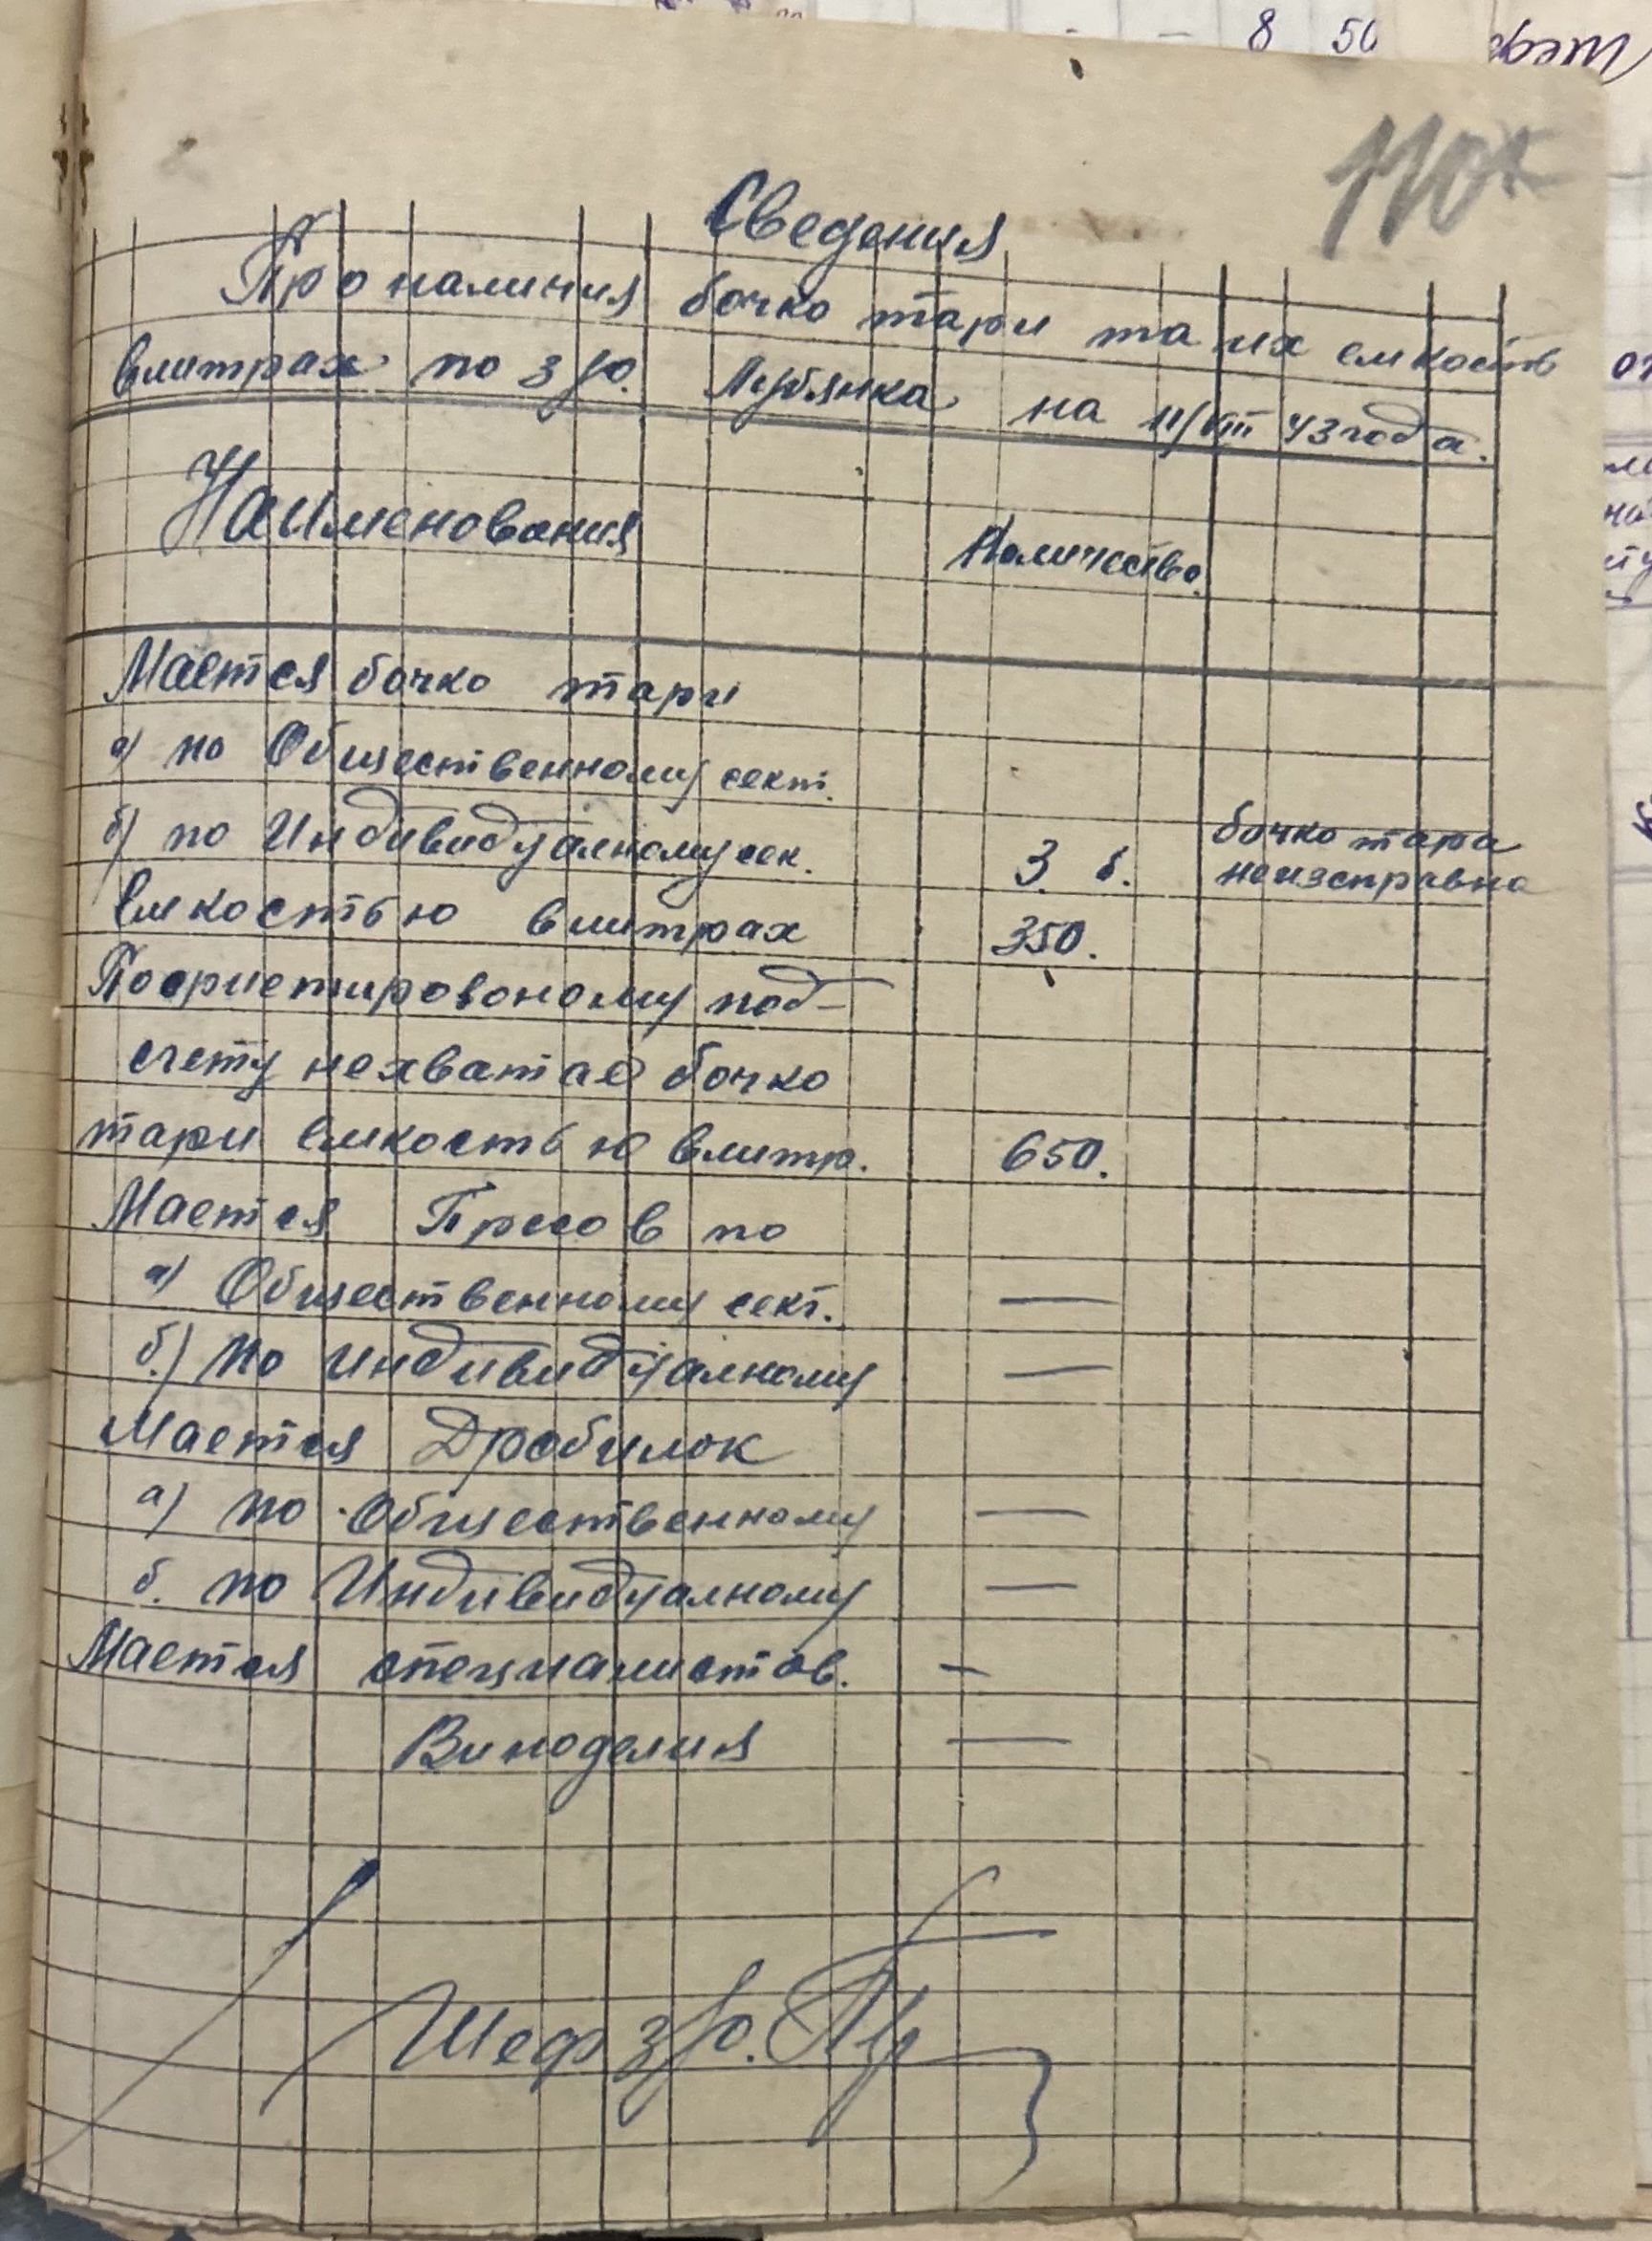 8 50
110
Сведения
Про наличия бочко тари та их емкость
влитрах по з/о. Лубянка на 11/VIII 43 года.
Наименования Количество.
Мается бочко тари
а) по Общественному сект.
б) по Индивидуалному сек. 3 б. бочко тара неизсправна
Емкостью влитрах 350.
Поориетировоному под-
счету нехватае бочко
тари Емкостью влитр. 650.
Мается Пресов по
а) Общественному сект. —
б.) по индивидуалному —
Мается Дробилок
а) по Общественному —
б. по Индивидуалному —
Мается специалистов. -
Виноделия —
Шеф з/о.